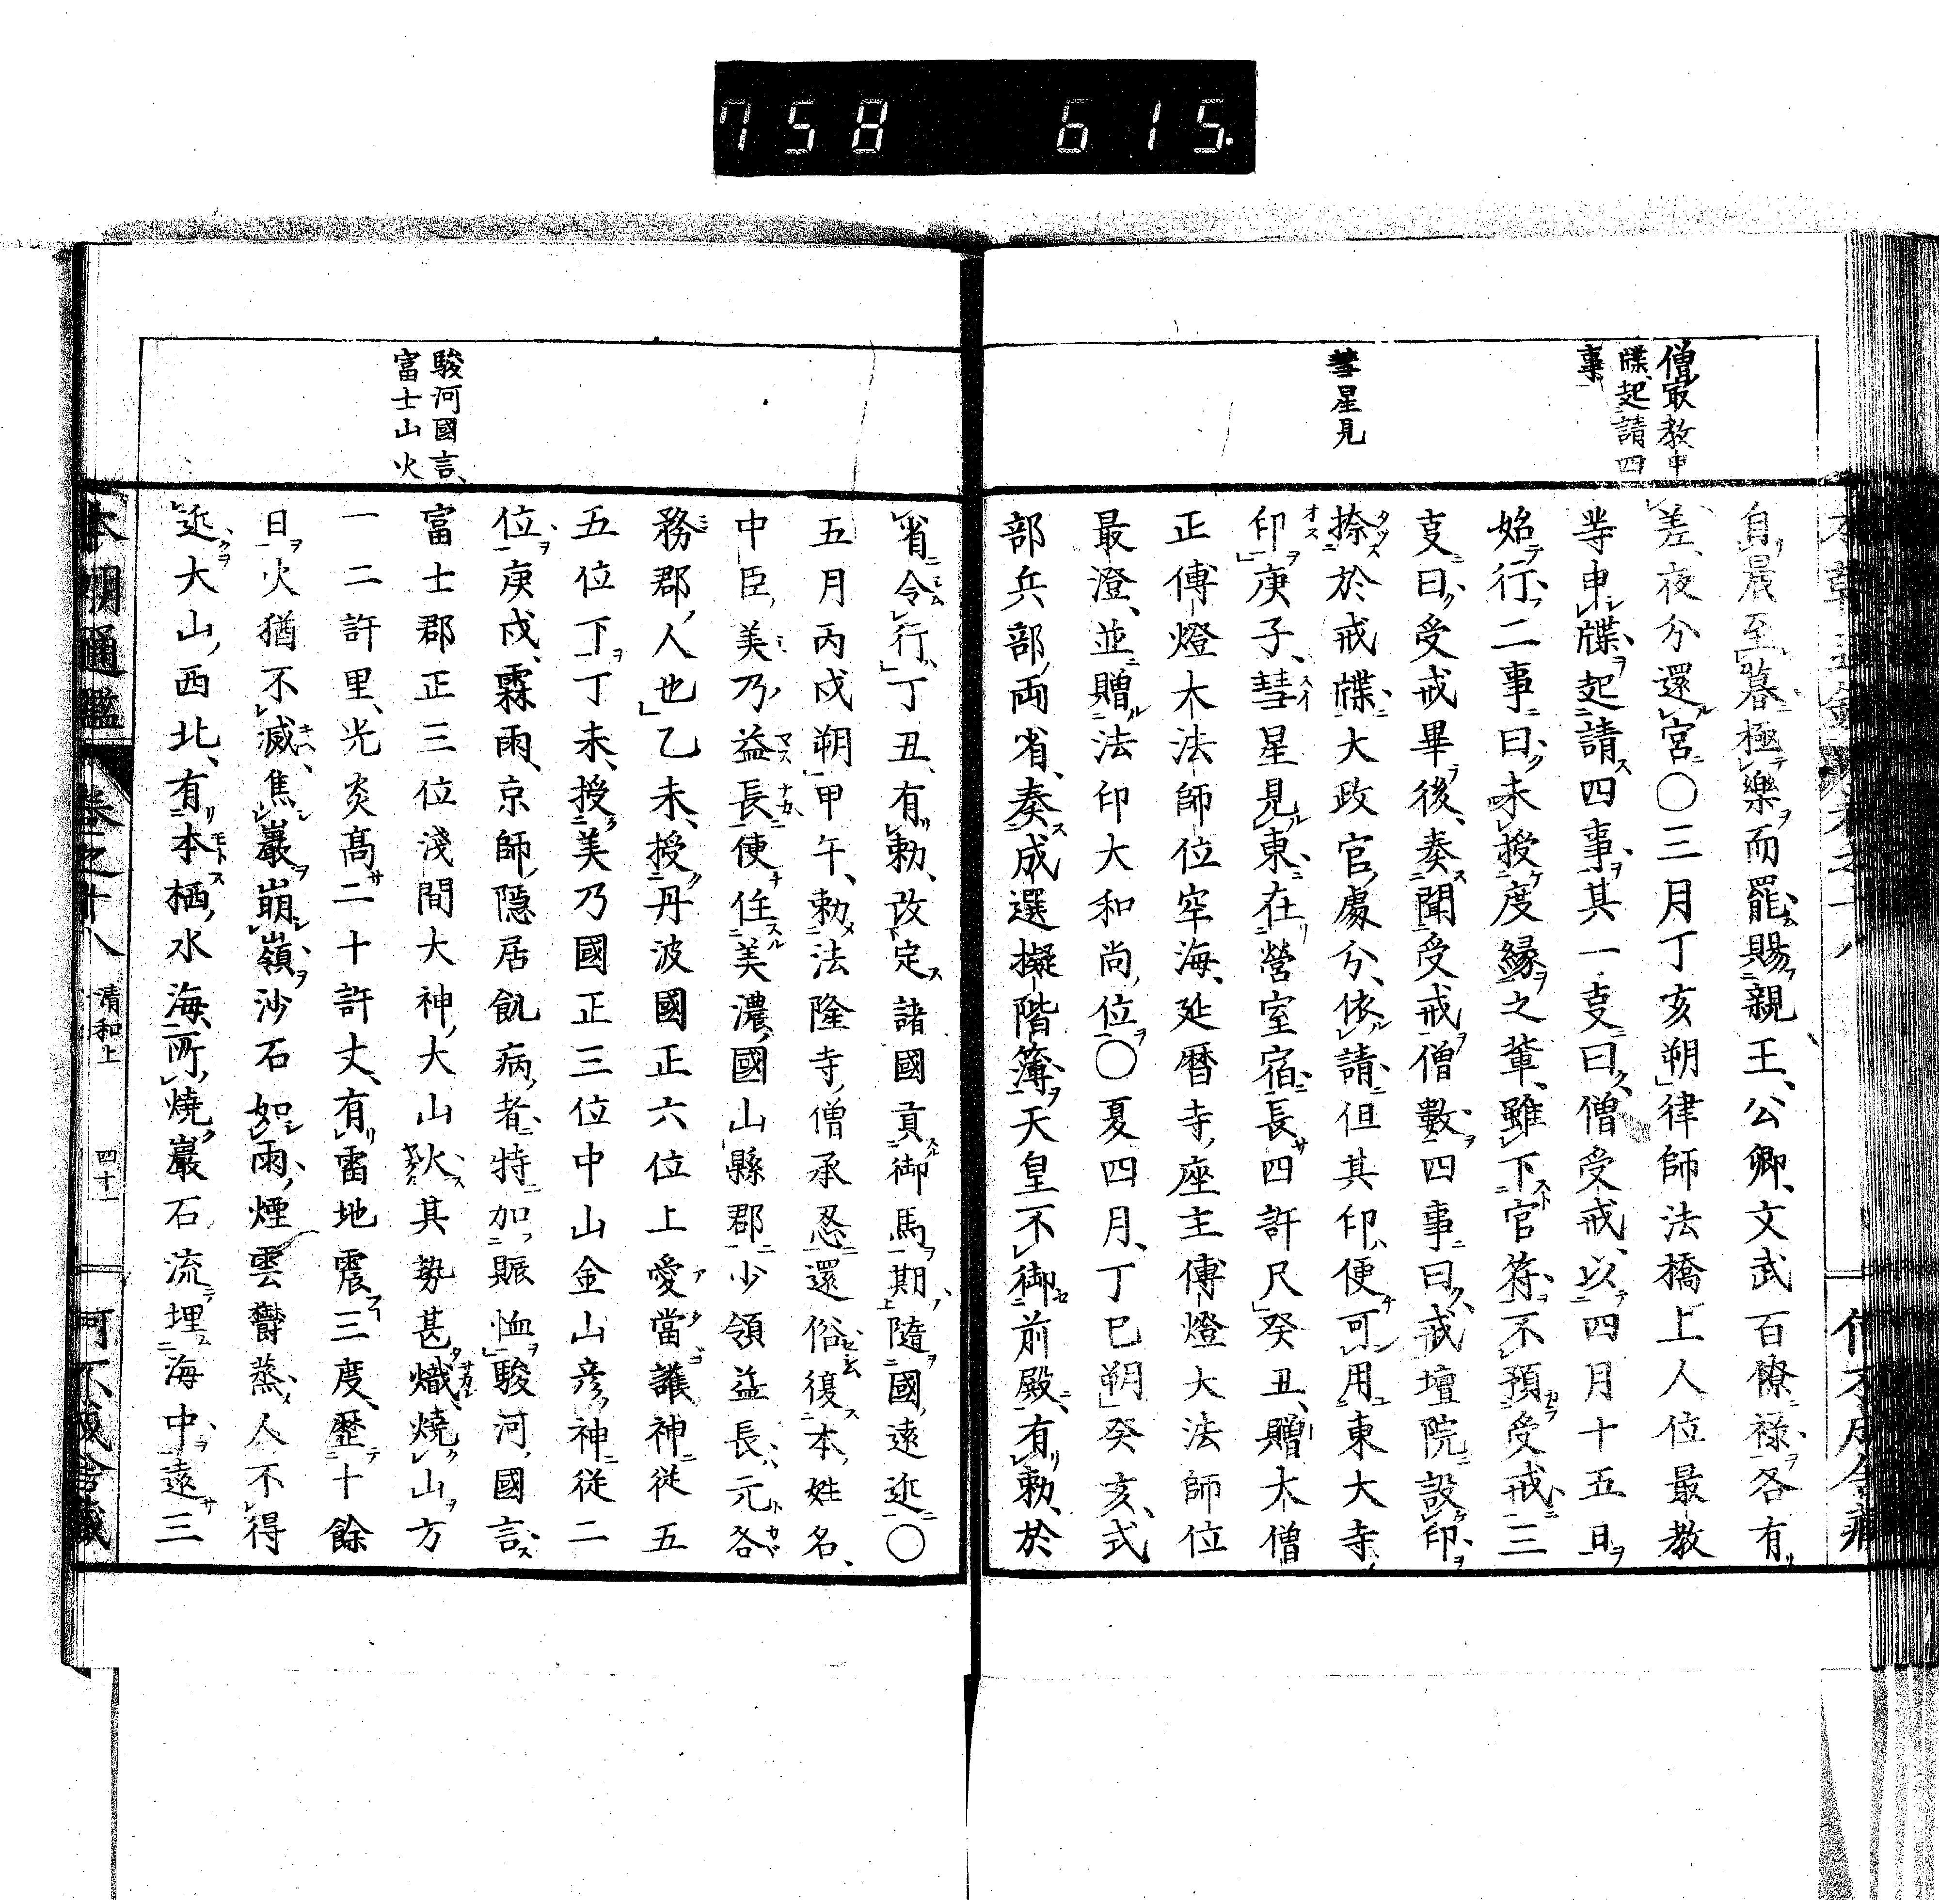 758 615.
僧最教申
牒起請四
事
彗星見
自晨至暮極樂而罷賜親王公卿文武百僚祿各有
差夜分還宮○三月丁亥朔律師法橋上人位最教
等申牒起請四事其一支曰僧受戒以四月十五日
始行二事曰未授度緣之輩雖下官符不預受戒三
支曰受戒畢後奏聞受戒僧數四事曰戒壇院設印
捺於戒牒大政官處分依請但其印便可用東大寺
印庚子彗星見東在營室宿長四許尺癸丑贈大僧
正傳燈大法師位空海延曆寺座主傳燈大法師位
最澄並贈法印大和尚位○夏四月丁巳朔癸亥式
部兵部兩省奏成選擬階簿天皇不御前殿有勅於
駿河國言
富士山火
省令行丁丑有勅改定諸國貢御馬期隨國遠近○
五月丙戌朔甲午勅法隆寺僧承忍還俗復本姓名
中臣美乃益長便任美濃國山縣郡少領益長元各
務郡人也乙未授丹波國正六位上愛當護神從五
五位下丁未授美乃國正三位中山金山彦神從二
位庚戌霖雨京師隱居飢病者特加賑恤駿河國言
富士郡正三位淺間大神大山火其勢甚熾燒山方
一二許里光炎高二十許丈有雷地震三度歷十餘
日火猶不滅焦巖崩嶺沙石如雨煙雲鬱蒸人不得
近大山西北有本栖水海所燒巖石流埋海中遠三
本朝通鑑 卷之十八 清和上 四十一